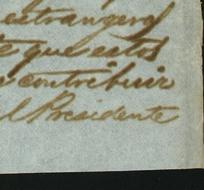 estrangero
te que estos
contribuir
l Presidente